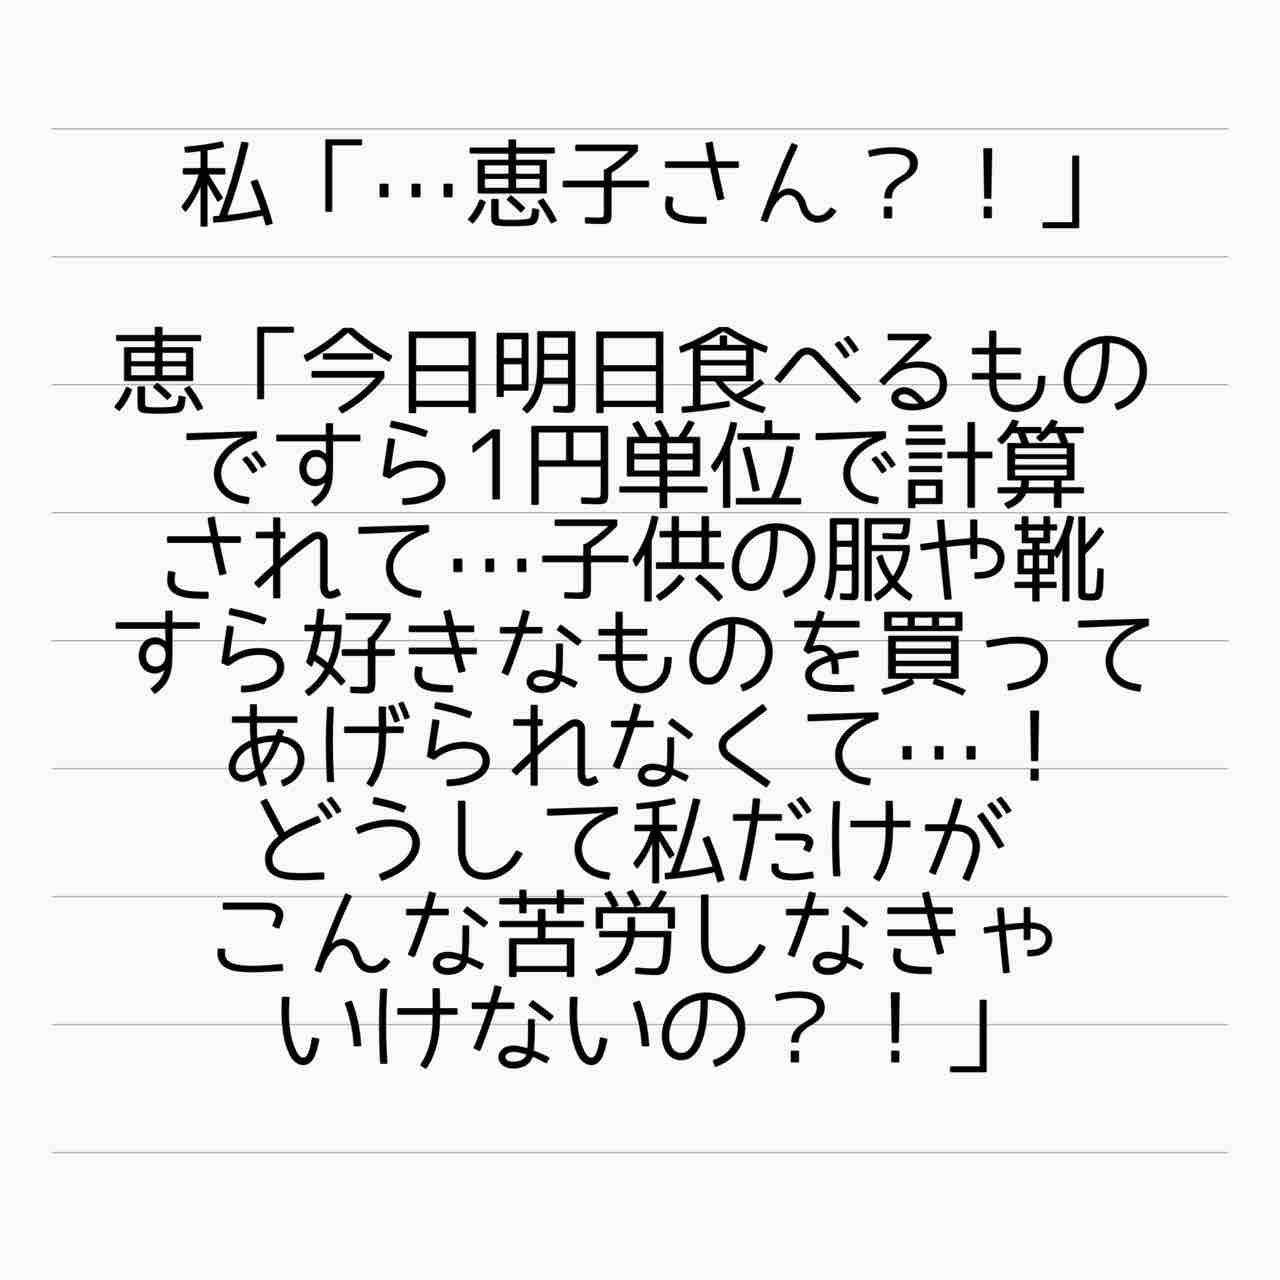 私「…恵子さん？！」
恵「今日明日食べるもの
ですら1円単位で計算
されて…子供の服や靴
すら好きなものを買って
あげられなくて…！
どうして私だけが
こんな苦労しなきゃ
いけないの？！」